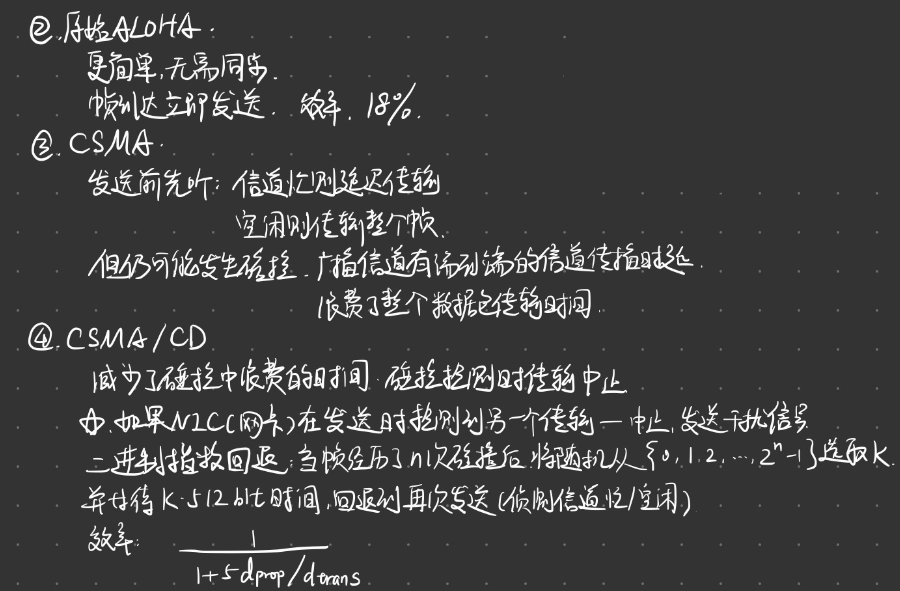 ②.原始ALOHA.
更简单,无需同步.
帧到达立即发送. 效率. 18%.
③.CSMA.
发送前先听: 信道忙则延迟传输
空闲则传输整个帧.
但仍可能发生碰撞. 广播信道有端到端的信道传播时延.
浪费了整个数据包传输时间.
④.CSMA/CD
减少了碰撞中浪费的时间. 碰撞检测时传输中止
如果NIC(网卡)在发送时检测到另一个传输—中止,发送干扰信号
二进制指数回退:当帧经历了n次碰撞后,将随机从{0,1,2,...,2ⁿ-1}选取K.
并等待K·512bit时间,回退到再次发送(侦测信道忙/空闲)
效率: 1
1+5dprop/dtrans